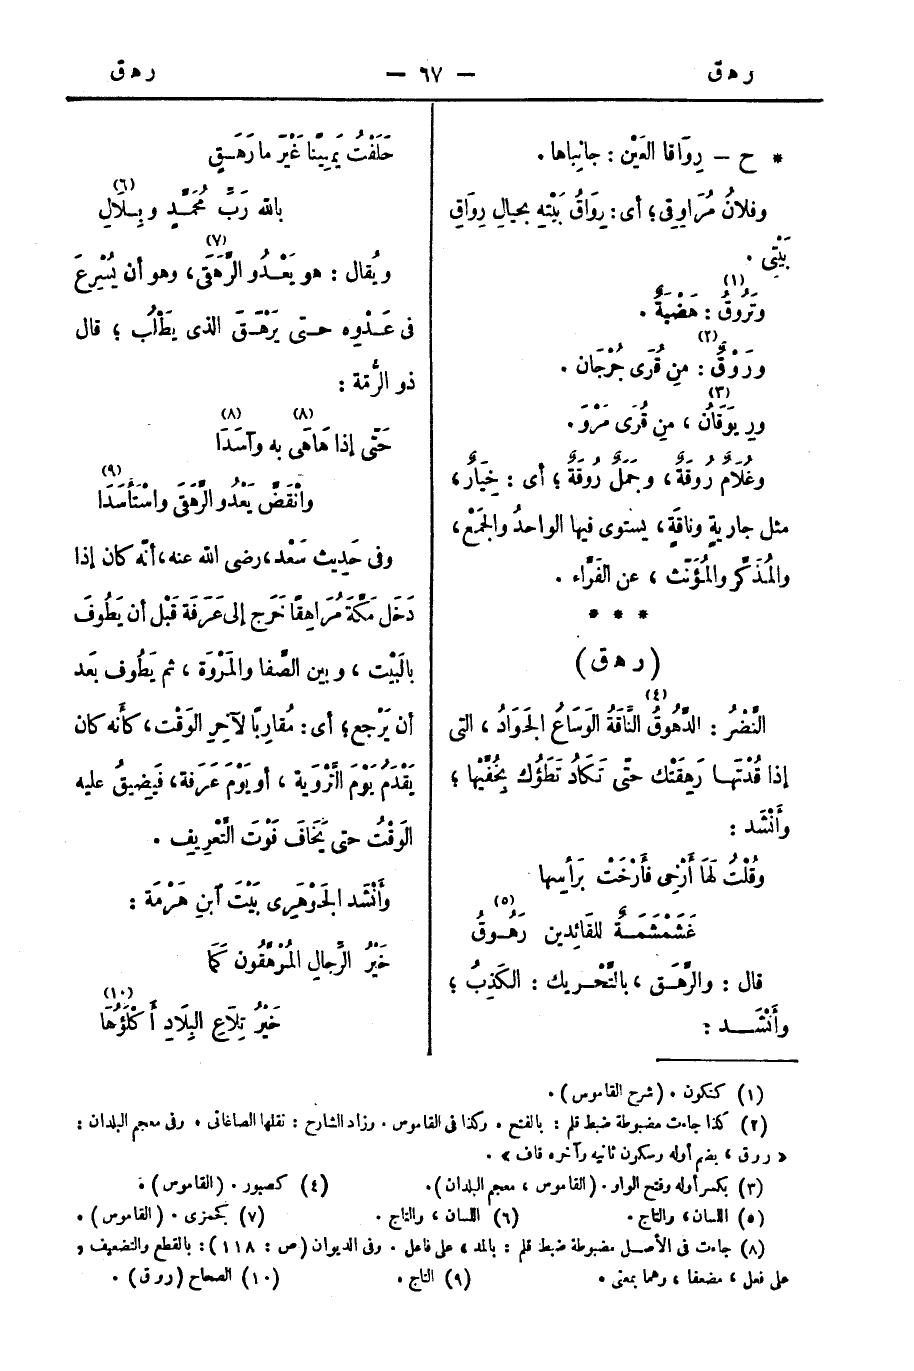 رهق
— ٦٧ —
رهق
* ح – رِوَاقَا العَيْن : جانِباها .
وفلانٌ مُرَاوِقِى؛ أى: رِوَاقُ بَيْتِهِ بحيالِ رِوَاقِ
بَيْتِى .
وتَرُوقُ (١) : هَضْبَةٌ .
ورَوْقٌ (٢) : مِن قُرَى جُرْجَان .
ورِيوَقَانُ (٣) ، مِن قُرَى مَرْوَ .
وغُلَامٌ رُوقَةٌ ، وجَمَلٌ رُوقَةٌ ؛ أى : خِيَارٌ ،
مثل جاريةٍ وناقَةٍ ، يستوى فيها الواحدُ والجَمْع ،
والمُذَكَّر والمُؤَنّث ، عن الفَرَّاء .
* * *
( رهق )
النَّضْرُ : الرَّهُوقُ (٤) النَّاقَةُ الوَسَاعُ الجَوَادُ ، التى
إذا قُدْتَها رَهِقَتْك حتَّى تَكَادُ تَطَؤُك بخُفَّيْها ؛
وأَنْشَد :
وقُلْتُ لَهَا أَرْخِى فأَرْخَتْ بَرَأسِها
غَشَمْشَمَةٌ للقَائِدين رَهُوقُ (٥)
قال : والرَّهَق ، بالتَّحْريك : الكَذِبُ ؛
وأَنْشَد :
حَلَفْتُ يَمِينًا غَيْرَ ما رَهَقٍ
بالله رَبِّ مُحَمَّدٍ وبِلَالِ (٦)
ويُقال : هو يَعْدُو الرَّهَقَى (٧) ، وهو أن يُسْرِعَ
فى عَدْوِه حتى يَرْهَقَ الذى يَطْلُب ؛ قال
ذو الرُّمّة :
حَتَّى إذا هَاهَى (٨) به وآسَدَا (٨)
وانْقَضَّ يَعْدُو الرَّهَقَى واسْتَأْسَدَا (٩)
وفى حَدِيث سَعْد، رضى الله عنه، أنّه كان إذا
دَخَل مَكَّةَ مُرَاهِقًا خَرَج إلى عَرَفَة قَبْل أن يَطُوفَ
بالبَيْت ، وبين الصَّفا والمَرْوَة ، ثم يَطُوف بَعد
أن يَرْجع؛ أى: مُقَارِبًا لآخِرِ الوَقْت، كأنه كان
يَقْدَمُ يَوْمَ التَّرْوِيَة ، أو يَوْمَ عَرَفة، فَيَضِيقُ عليه
الوَقْتُ حتى يَخَافَ فَوْتَ التَّعْرِيفِ .
وأَنْشَد الجَوْهَرِى بَيْتَ ٱبنِ هَرْمَة :
خَيْرُ الرِّجالِ المُرْهَقُون كَمَا
خَيْرُ تِلَاعِ البِلَادِ أَكْلَؤُهَا (١٠)
(١) كتكون . (شرح القاموس) .
(٢) كذا جاءت مضبوطة ضبط قلم : بالفتح . وكذا فى القاموس . وزاد الشارح : نقلها الصاغانى . وفى معجم البلدان :
« روق ، بضم أوله وسكون ثانيه وآخره قاف » .
(٣) بكسر أوله وفتح الواو . (القاموس ، معجم البلدان) . (٤) كصبور . (القاموس) .
(٥) اللسان، والتاج . (٦) اللسان ، والتاج . (٧) كجمزى . (القاموس) .
(٨) جاءت فى الأصل مضبوطة ضبط قلم : بالمد ، على فاعل . وفى الديوان (ص : ١١٨): بالقطع والتضعيف و
على فعل ، مضعفا ، وهما بمعنى . (٩) التاج . (١٠) الصحاح (روق) .